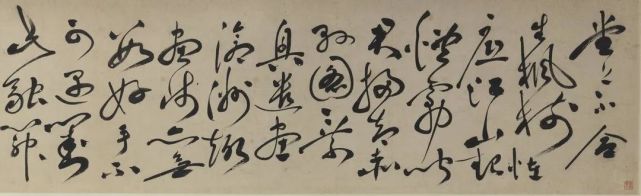 堂上不合
生楓樹怪
底江山起
煙霧聞
君掃却赤
縣圖乘
興遣畫
滄洲趣
畫師亦無
數好手不
可遇對
此融心神